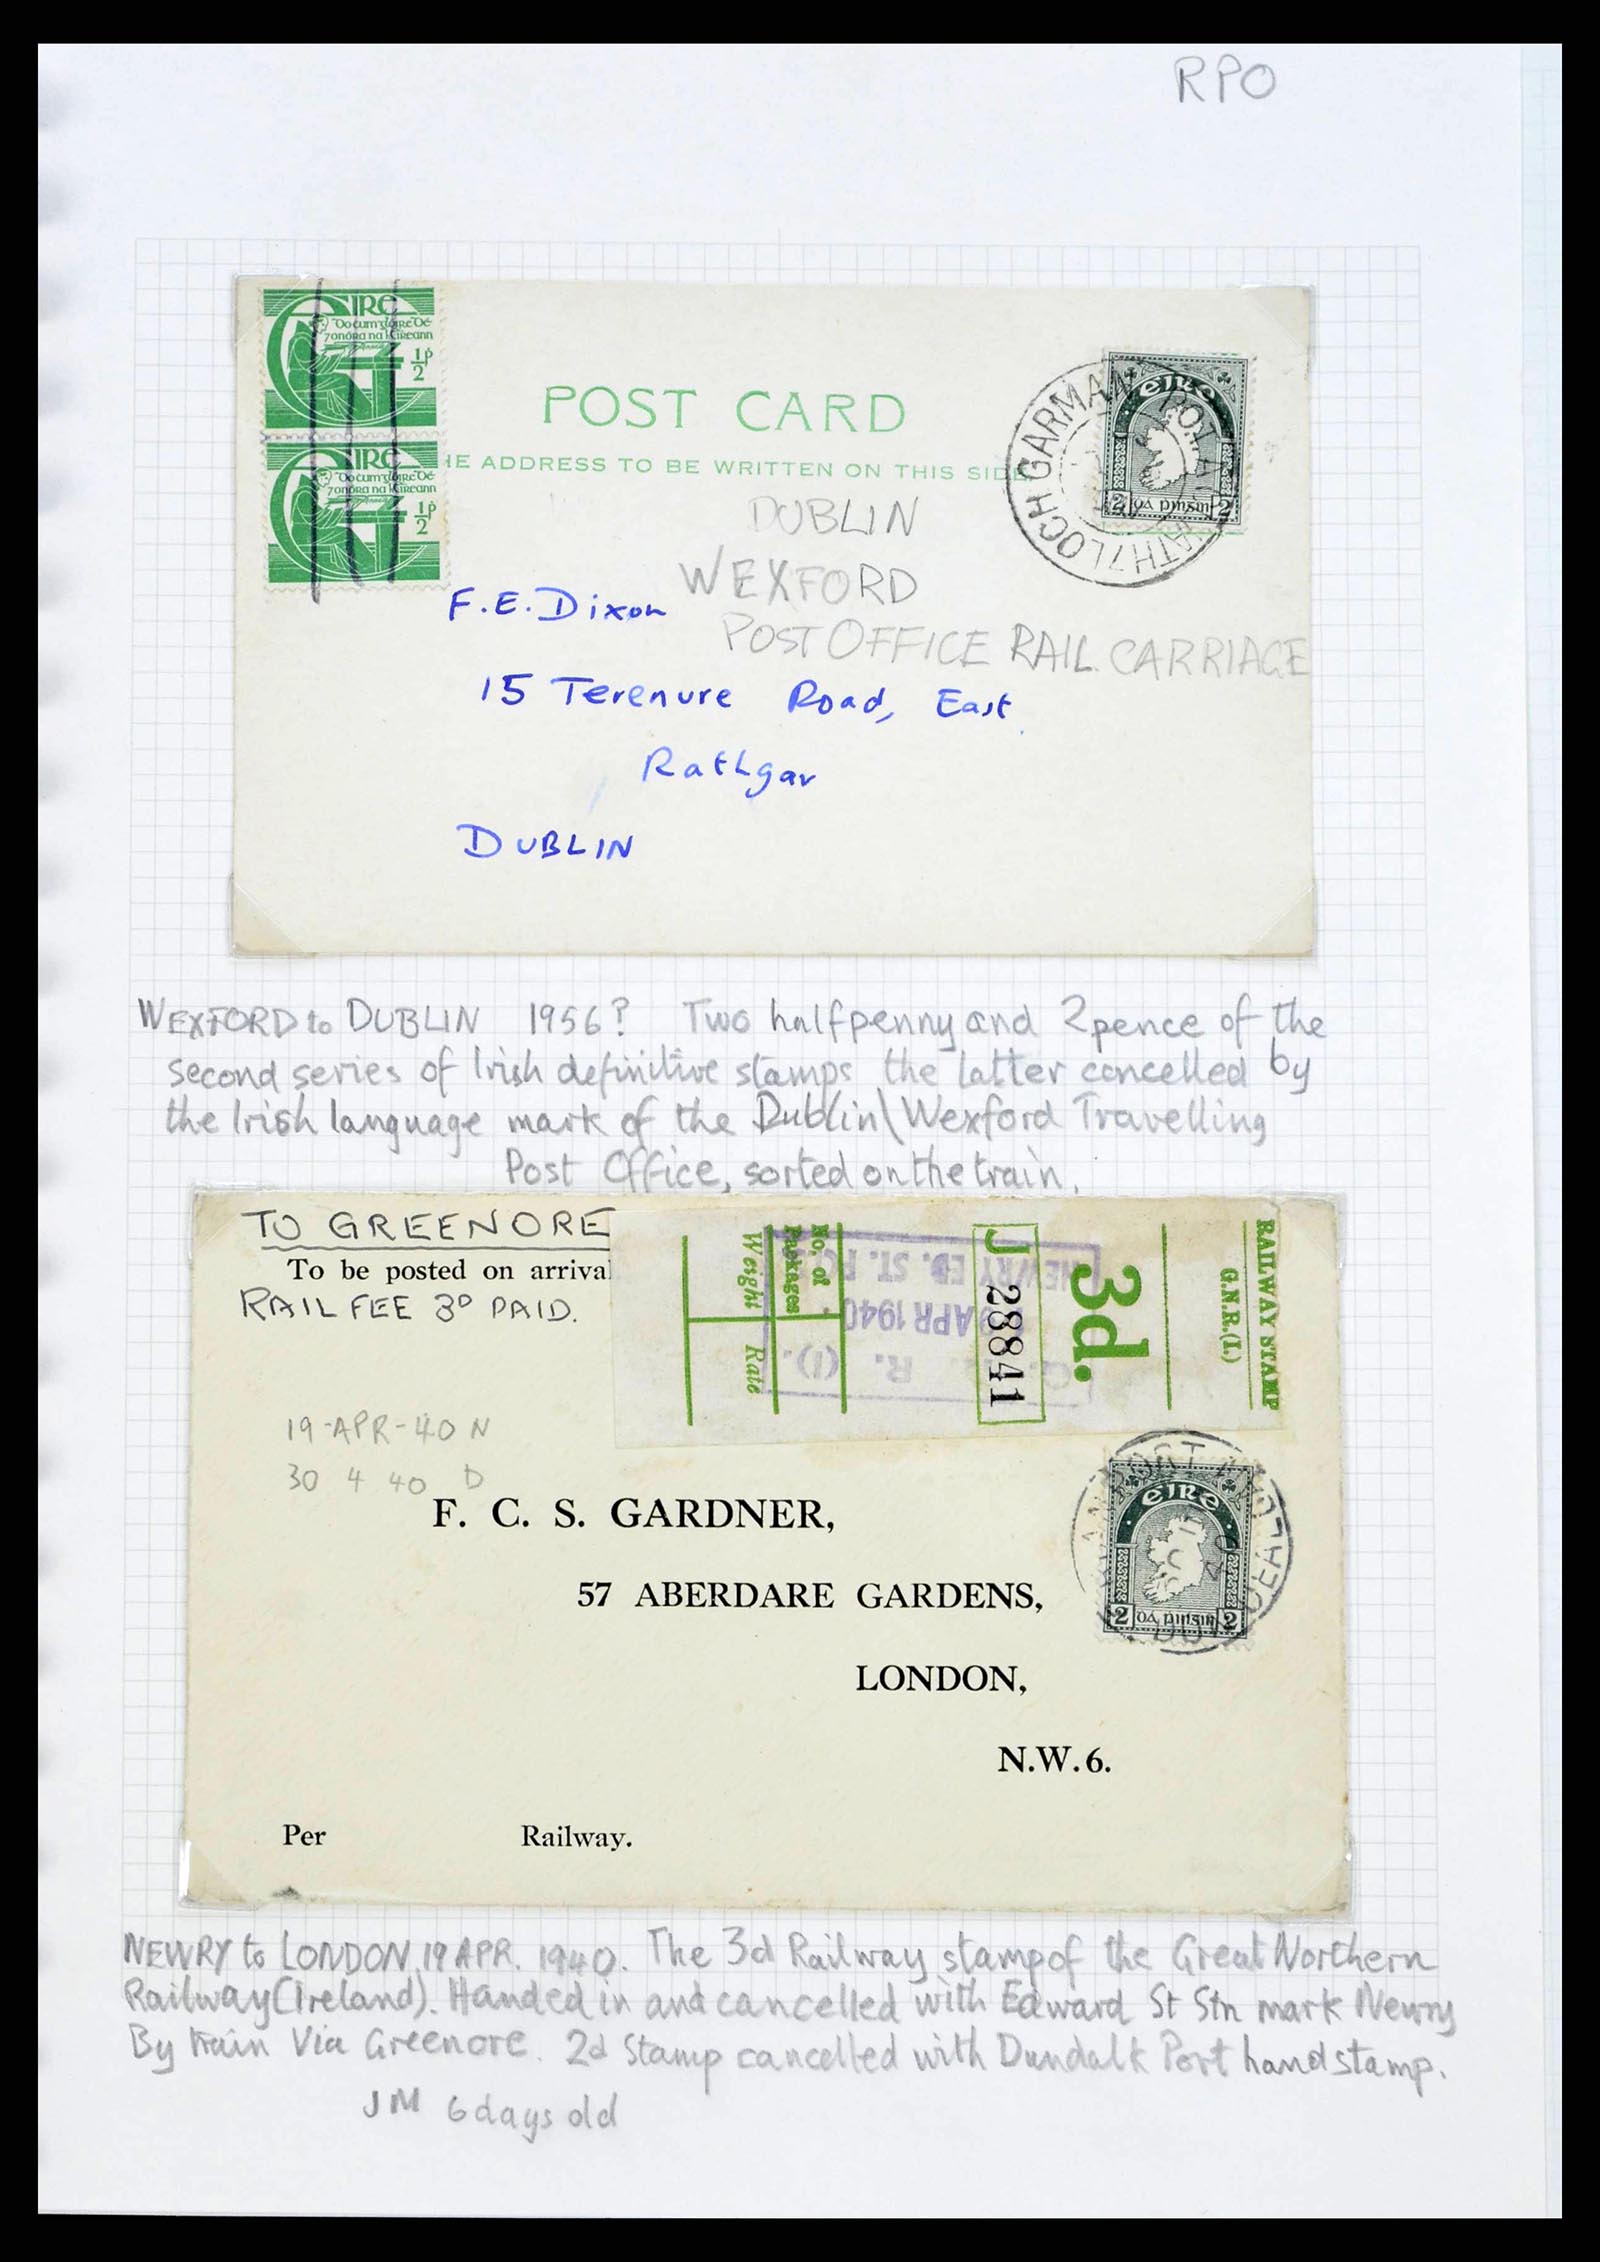 RPO
EIRE
Do cum glóire Dé
7 onóra na hÉireann
½p
EIRE
Do cum glóire Dé
7 onóra na hÉireann
½p
POST CARD
HE ADDRESS TO BE WRITTEN ON THIS SIDE
LOCH GARMAN
ATH 7
éIRe
2 DÁ PINSIN 2
DUBLIN
WEXFORD
POST OFFICE RAIL CARRIAGE
F.E. Dixon
15 Terenure Road, East
Rathgar
DUBLIN
WEXFORD to DUBLIN 1956? Two halfpenny and 2pence of the
second series of Irish definitive stamps the latter cancelled by
the Irish language mark of the Dublin\Wexford Travelling
Post Office, sorted on the train.
TO GREENORE
To be posted on arrival
RAIL FEE 3D PAID.
RAILWAY STAMP
G.N.R.(I.)
3d.
J 28841
No. of Packages
Weight Rate
NEWRY ED. ST.
APR 1940
R. (I).
19-APR-40 N
30 4 40 D
F. C. S. GARDNER,
57 ABERDARE GARDENS,
LONDON,
N.W.6.
Per Railway.
éIRe
2 DÁ PINSIN 2
NEWRY to LONDON 19 APR. 1940. The 3d Railway stamp of the Great Northern
Railway (Ireland). Handed in and cancelled with Edward St Stn mark Newry
By train Via Greenore. 2d Stamp cancelled with Dundalk Port handstamp.
JM 6 days old